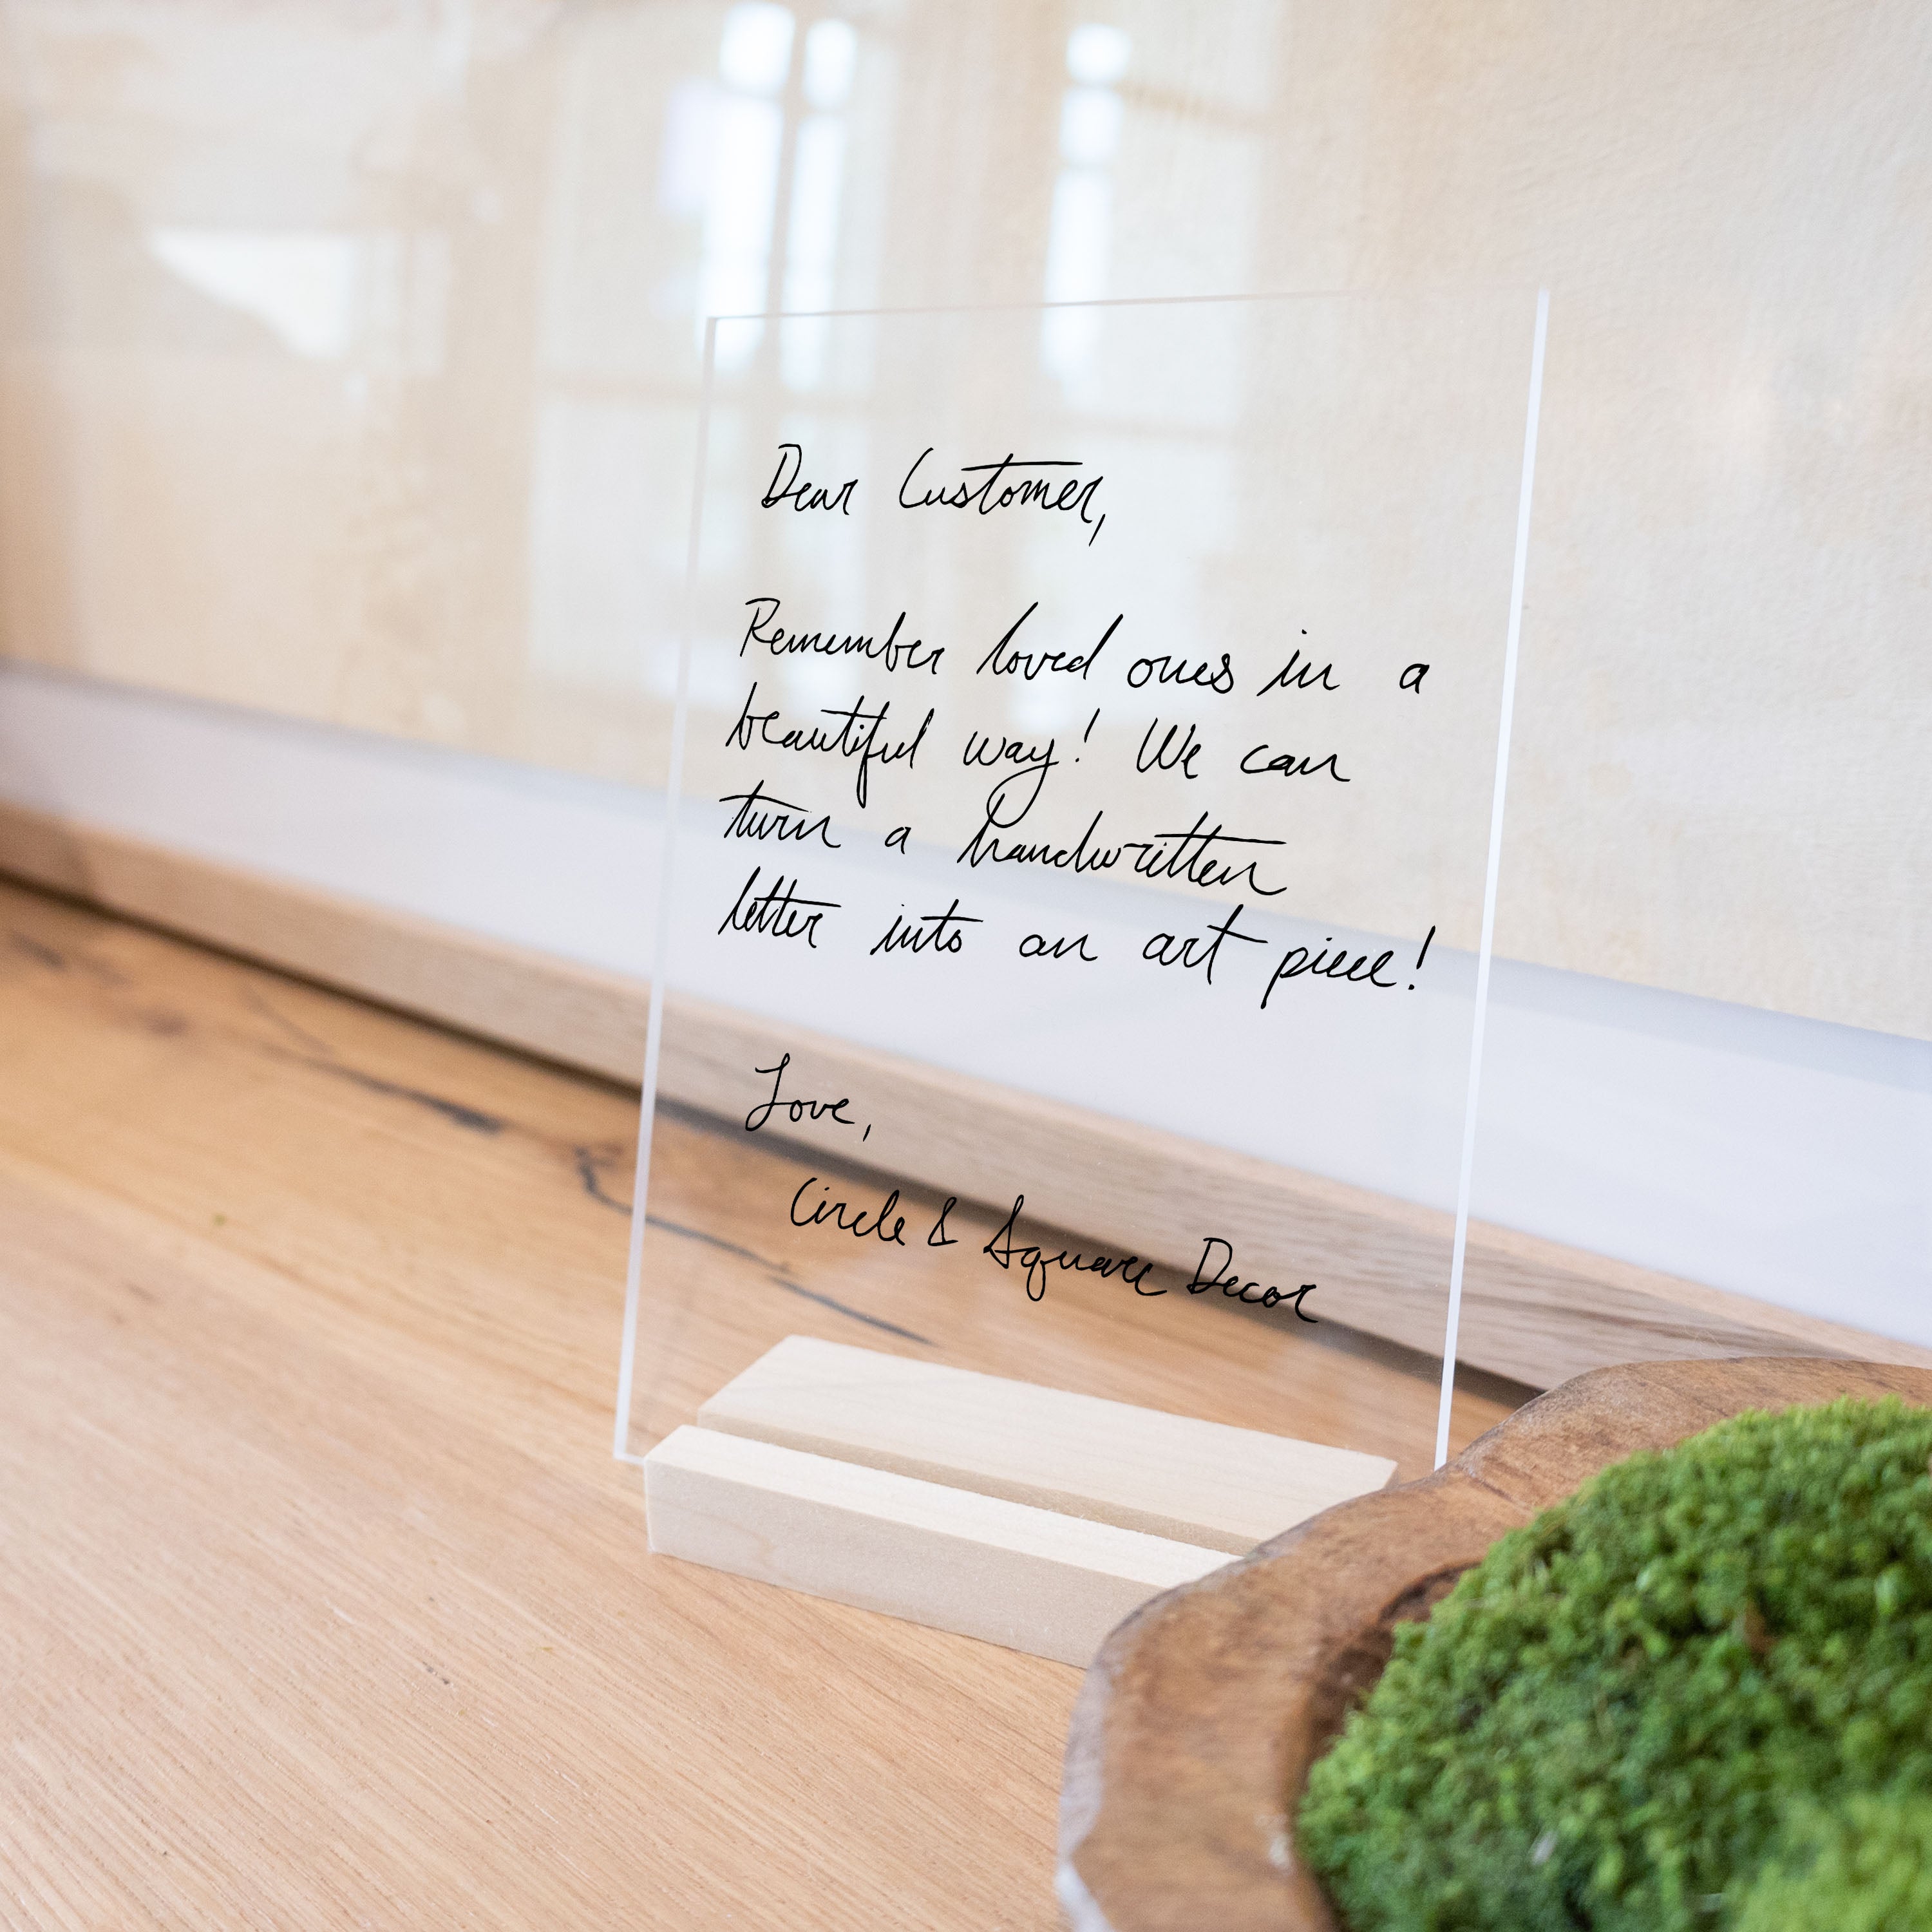 Dear Customer,
Remember loved ones in a
beautiful way! We can
turn a handwritten
letter into an art piece!
Love,
Circle & Square Decor